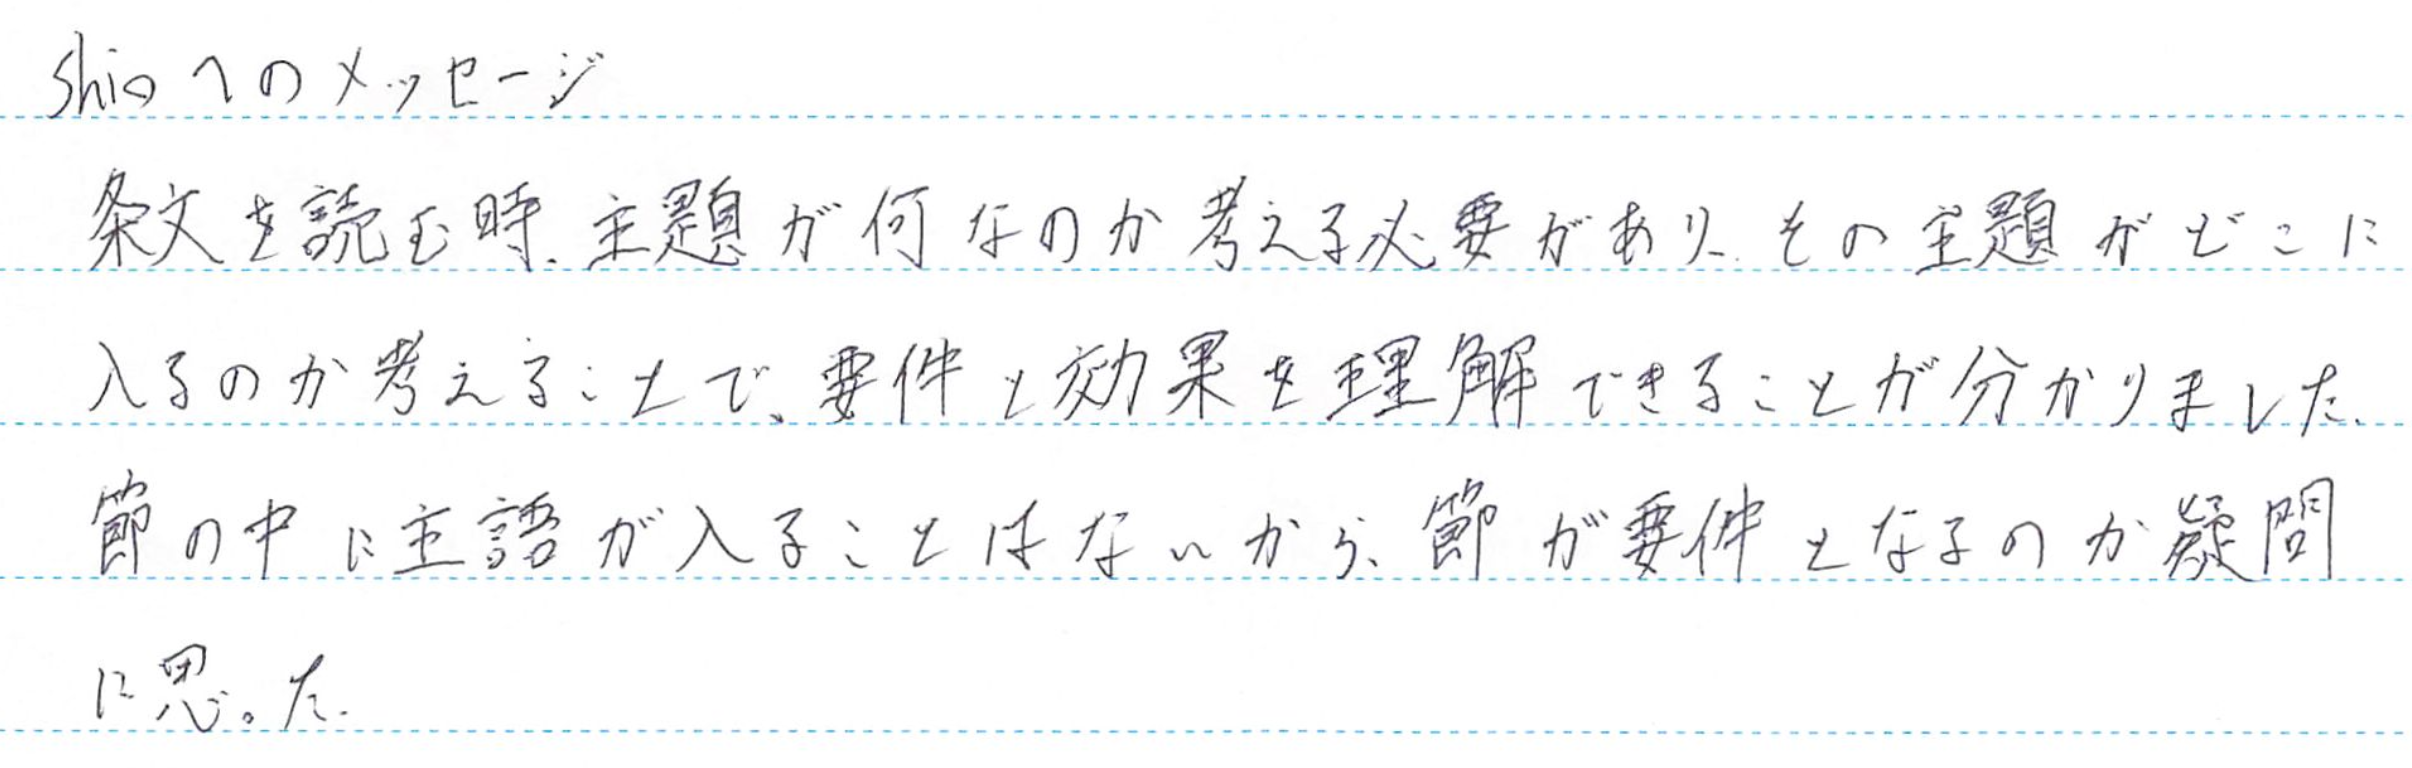 shioへのメッセージ
条文を読む時、主題が何なのか考える必要があり、その主題がどこに
入るのか考えることで、要件と効果を理解できることが分かりました.
節の中に主語が入ることはないから、節が要件となるのか疑問
に思った.